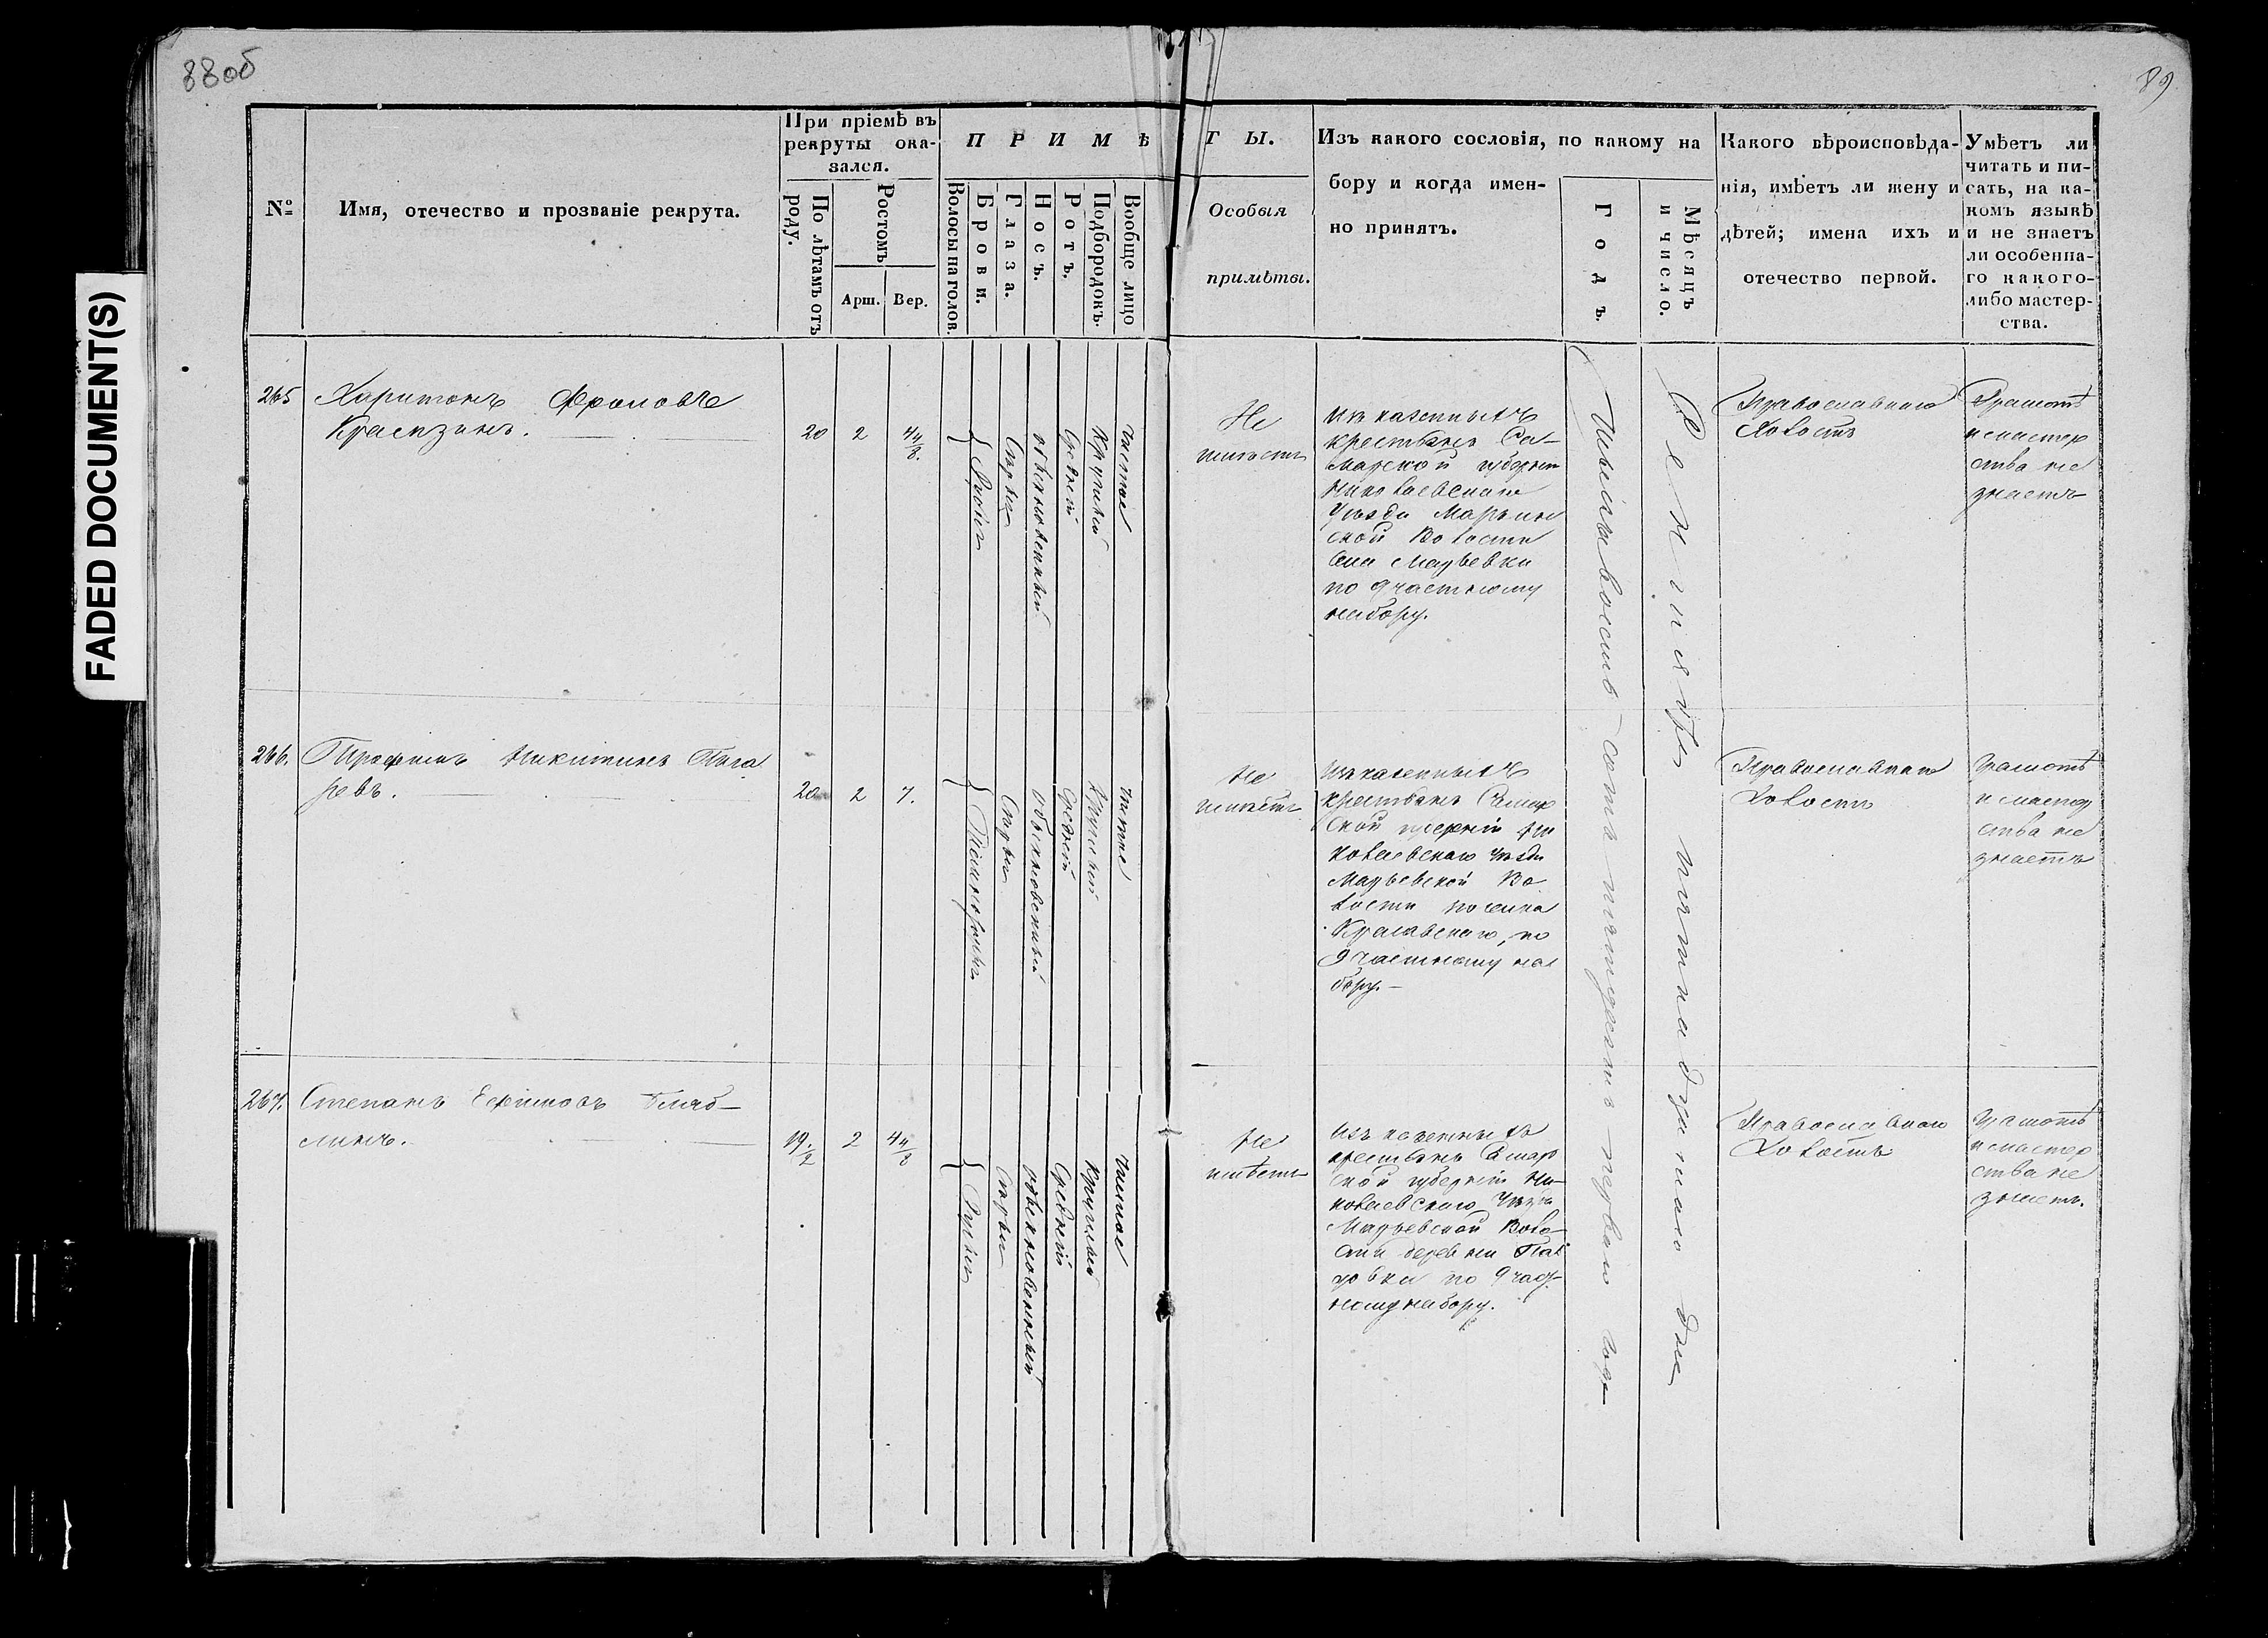 88об
89
FADED DOCUMENT(S)
№
Имя, отечество и прозваніе рекрута.
При пріемѣ въ
рекруты ока-
зался.
По лѣтамъ отъ
роду.
Ростомъ
Арш.
Вер.
ПРИМѢ
Волосы на голов.
Брови.
Глаза.
Носъ.
Ротъ.
Подбородокъ.
Вообще лицо
ТЫ.
Особыя
примѣты.
Изъ какого сословія, по какому на
бору и когда имен-
но принятъ.
Годъ.
Мѣсяцъ
и число.
Какого вѣроисповѣда-
нія, имѣетъ ли жену и
дѣтей; имена ихъ и
отечество первой.
Умѣетъ ли
читать и пи-
сать, на ка-
комъ языкѣ
и не знаетъ
ли особенна-
го какого-
либо мастер-
ства.
265
Харитонъ Фроловъ
20
2
4 4/8.
Русые
Сѣрые
обыкновенный
Средній
Круглый
Чистое
Не
имѣетъ
Изъ казенныхъ
крестьянъ Са-
марской губерніи
Николаевскаго
Уѣзда
ской Волости
села
по 9 частному
набору.
Тысяча восемь-сотъ пятьдесятъ перваго года
Сентября пятнадцатаго дня
Православнаго
Холостъ
Грамотѣ
и мастер
ства не
знаетъ
266.
Трофимъ Никитинъ
20
2
7.
Темнорусые
Сѣрые
обыкновенный
Средній
Круглый
Чистое
Не
имѣетъ
Изъ казенныхъ
крестьянъ Самар
ской губерніи Ни
колаевскаго Уѣзда
Во
лости
по
9 частному на
бору.-
Православнаго
Холостъ
Грамотѣ
и мастер
ства не
знаетъ
267.
Степанъ Ефимовъ
19. 1/2
2
4 4/8
Русые
Сѣрые
обыкновенный
Средній
Круглый
Чистое
Не
имѣетъ
Изъ казенныхъ
крестьянъ Самар
ской губерніи Ни-
колаевскаго Уѣзда
Воло-
сти деревни
по 9 част-
ному набору.
Православнаго
Холостъ
Грамотѣ
и мастер
ства не
знаетъ.